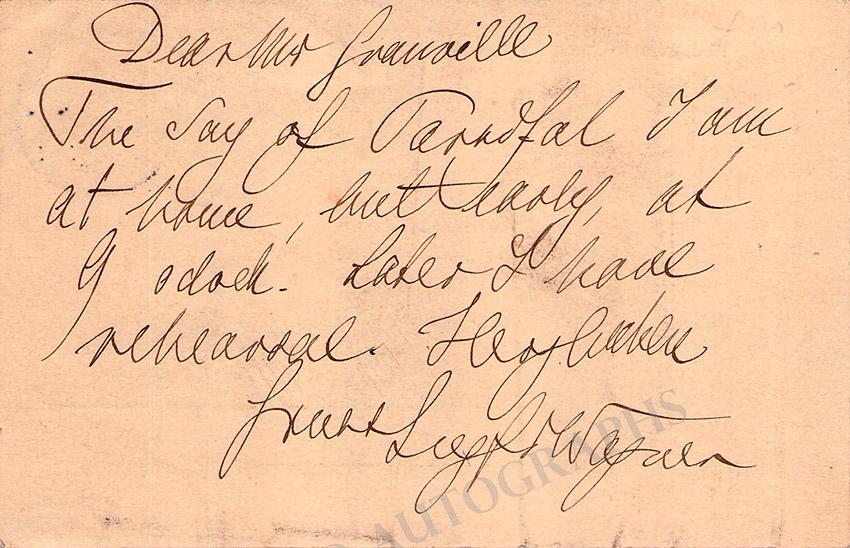 Dear Mr Granville
The day of Parsifal I am
at home, but early, at
9 oclock. Later I have
rehearsal. Herzlichen
Gruss Siegfr Wagner
AUTOGRAPHS